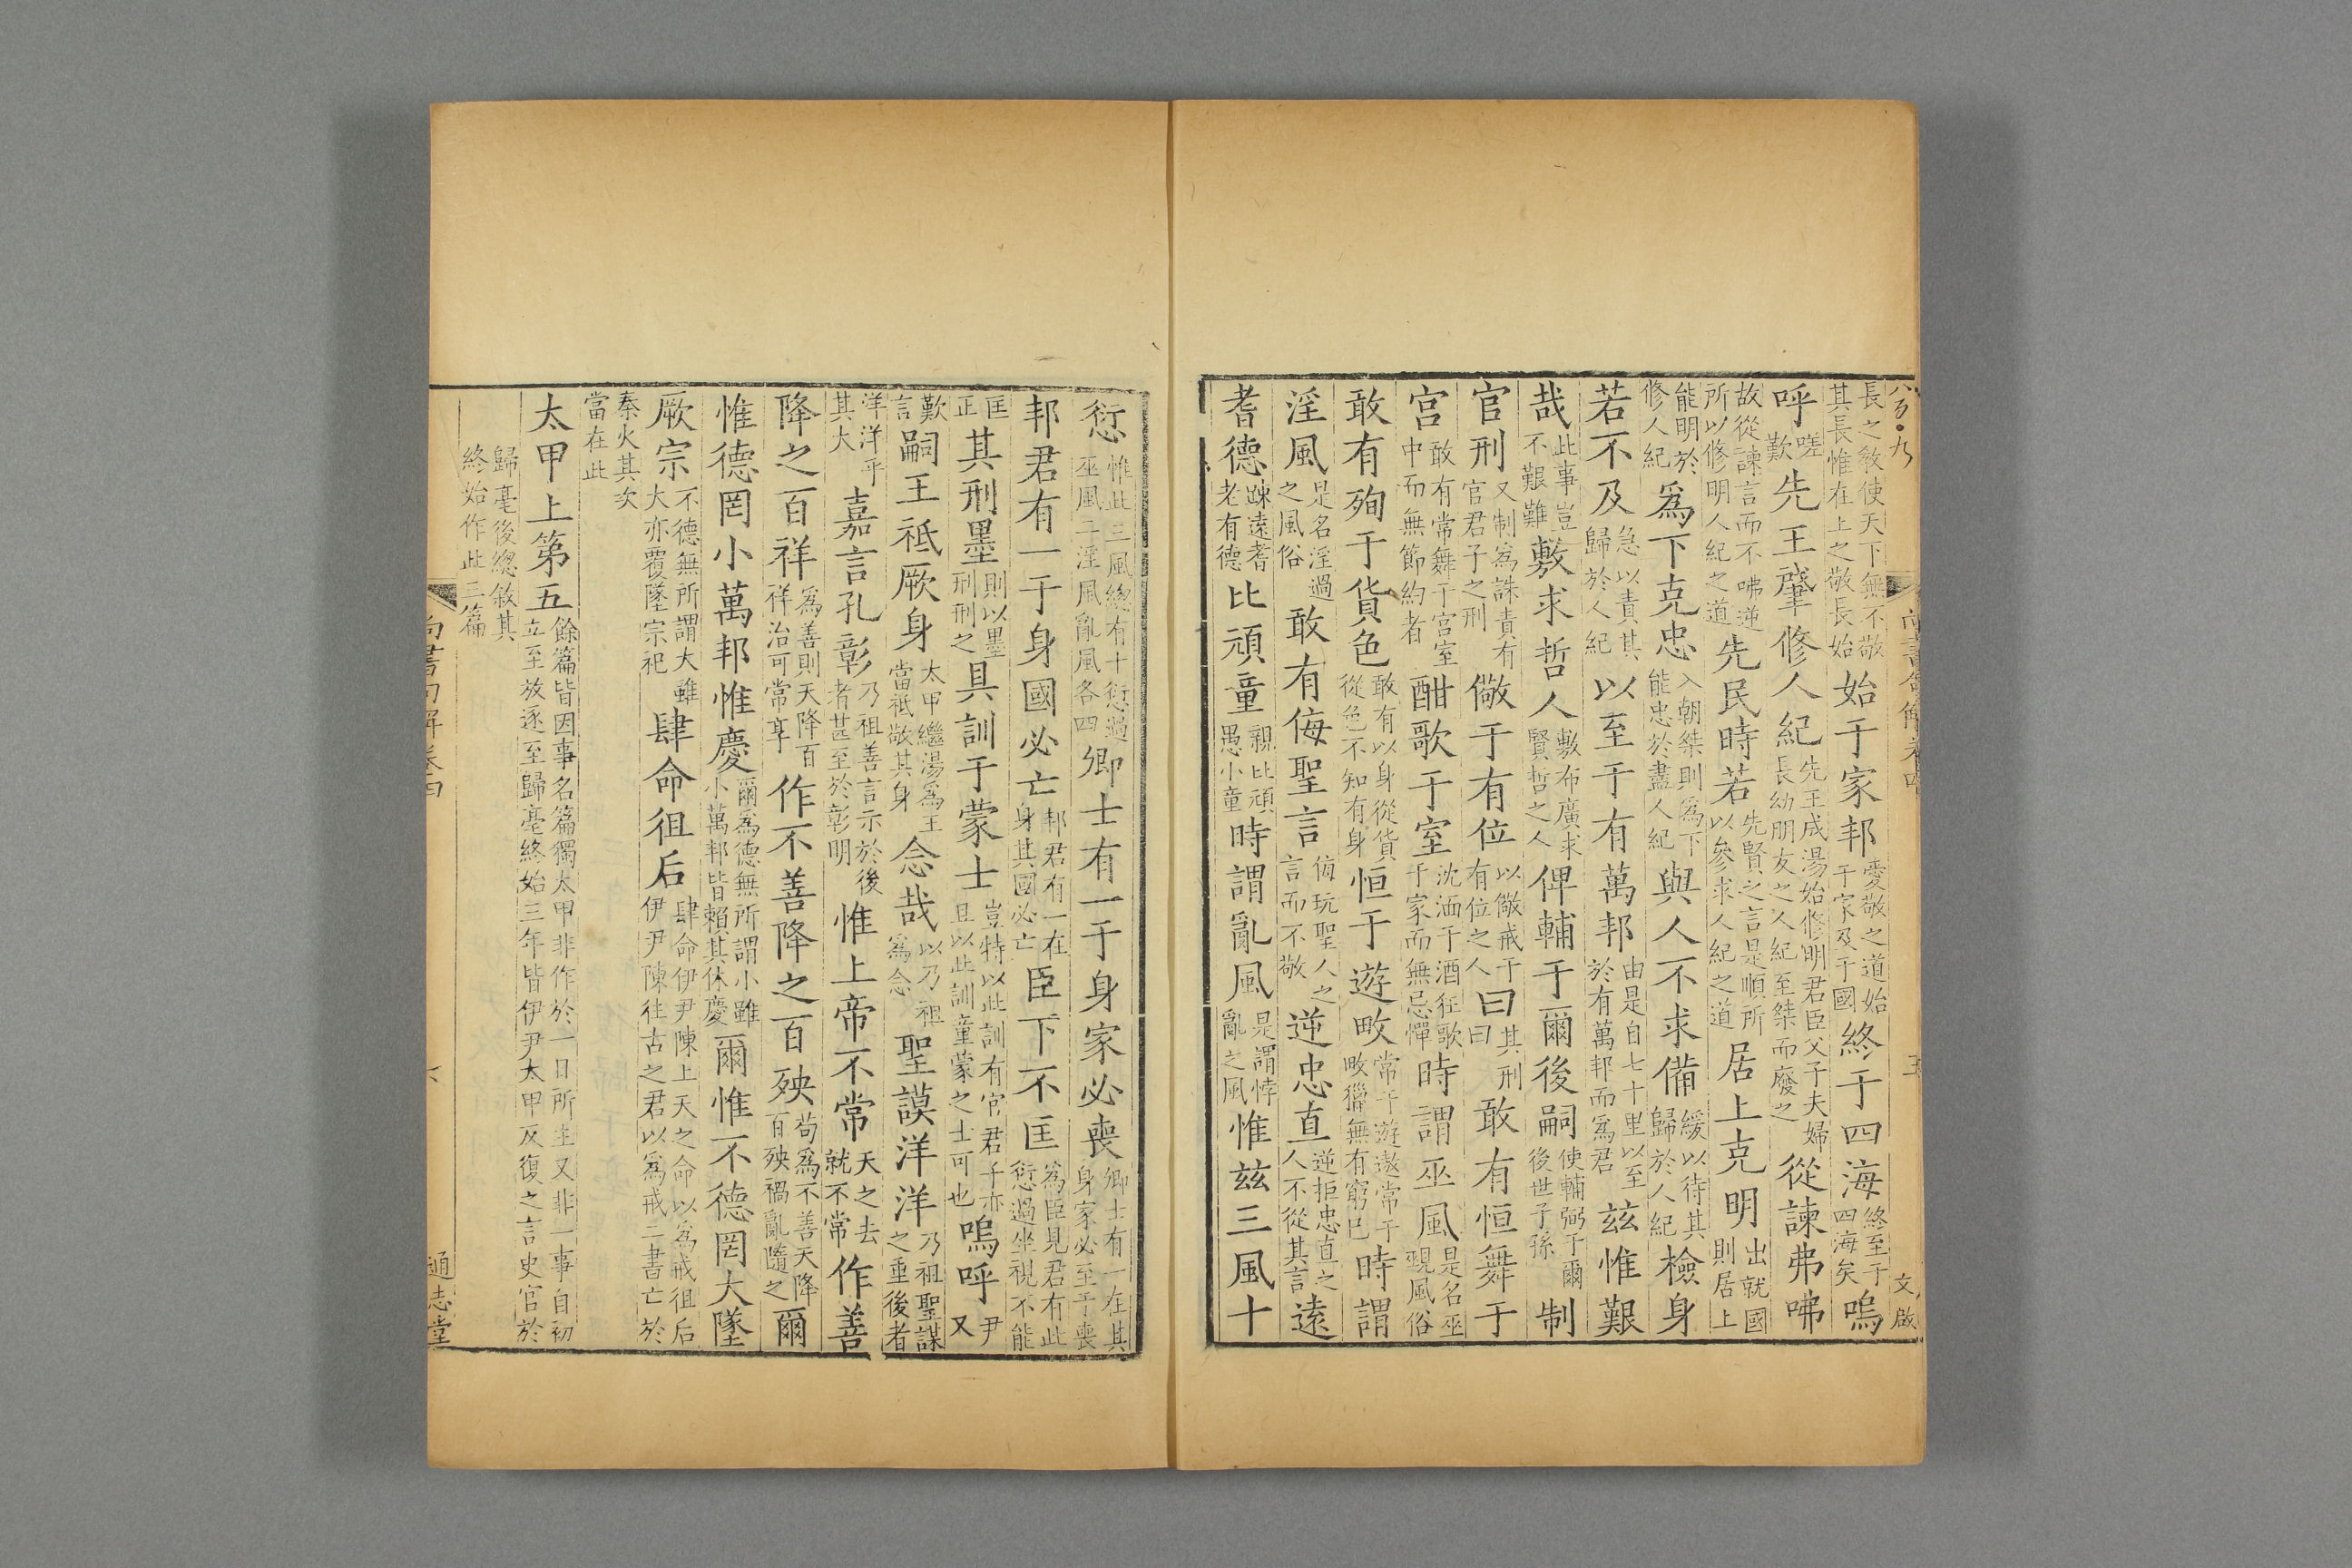 尚書句解卷四
五
文啟
長之敎使天下無不敬其長惟在上之敬長始始于家邦愛敬之道始于家及于國終于四海終至于四海矣嗚
呼嗟歎先王肇修人紀先王成湯始修明君臣父子夫婦長幼朋友之人紀至桀而廢之從諫弗咈
故從諫言而不咈逆所以修明人紀之道先民時若先賢之言是順所以參求人紀之道居上克明出就國則居上
能明於修人紀爲下克忠入朝桀則爲下能忠於盡人紀與人不求備緩以待其歸於人紀檢身
若不及急以責其歸於人紀以至于有萬邦由是自七十里以至於有萬邦而爲君兹惟艱
哉此事豈不艱難敷求哲人敷布廣求賢哲之人俾輔于爾後嗣使輔弼于爾後世子孫制
官刑又制爲誅責有官君子之刑儆于有位以儆戒于有位之人曰其刑曰敢有恒舞于
宮敢有常舞于宮室中而無節約者酣歌于室沈湎于酒狂歌于家而無忌憚時謂巫風是名巫覡風俗
敢有殉于貨色敢有以身從貨從色不知有身恒于遊畋常于遊遨常于畋獵無有窮已時謂
淫風是名淫過之風俗敢有侮聖言侮玩聖人之言而不敬逆忠直逆拒忠直之人不從其言遠
耆德踈遠耆老有德比頑童親比頑愚小童時謂亂風是謂悖亂之風惟兹三風十
愆惟此三風緫有十愆過巫風二淫風亂風各四卿士有一于身家必喪卿士有一在其身家必至于喪
邦君有一于身國必亡邦君有一在身其國必亡臣下不匡爲臣見君有此愆過坐視不能
匡正其刑墨則以墨刑刑之具訓于蒙士豈特以此訓有官君子亦且以此訓童蒙之士可也嗚呼尹又
歎言嗣王祗厥身太甲繼湯爲王當祗敬其身念哉以乃祖爲念聖謨洋洋乃祖聖謀之垂後者
洋洋乎其大嘉言孔彰乃祖善言示於後者甚至於彰明惟上帝不常天之去就不常作善
降之百祥爲善則天降百祥治可常享作不善降之百殃苟爲不善天降百殃禍亂隨之爾
惟德罔小萬邦惟慶爾爲德無所謂小雖小萬邦皆賴其休慶爾惟不德罔大墜
厥宗不德無所謂大雖大亦覆墜宗祀肆命徂后肆命伊尹陳上天之命以爲戒徂后伊尹陳往古之君以爲戒二書亡於
秦火其次當在此
太甲上第五餘篇皆因事名篇獨太甲非作於一日所主又非一事自初立至放逐至歸亳終始三年皆伊尹太甲反復之言史官於
歸亳後緫敘其終始作此三篇
尚書句解卷四
六
通志堂